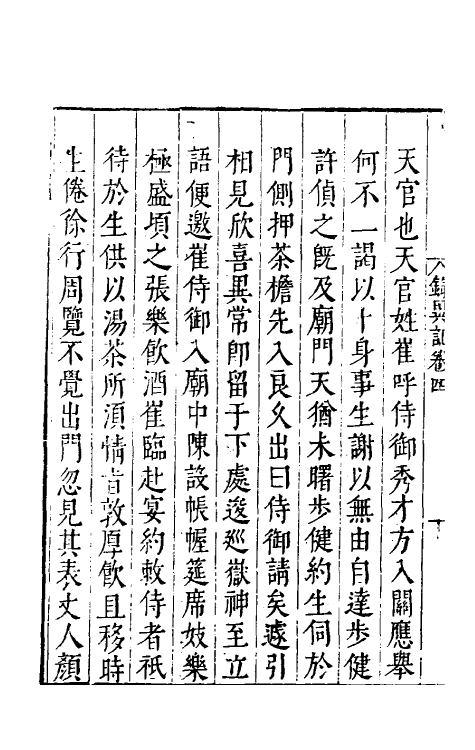 錄異記卷四
天官也天官姓崔呼侍御秀才方入關應舉
何不一謁以卜身事生謝以無由自達步健
許偵之既及廟門天猶未曙步健約生伺於
門側押茶檐先入良久出曰侍御請矣遽引
相見欣喜異常卽留于下處逡巡嶽神至立
語便邀崔侍御入廟中陳設帳幄筵席妓樂
極盛頃之張樂飲酒崔臨赴宴約敕侍者祇
待於生供以湯茶所湏情旨敦厚飲且移時
生倦徐行周覽不覺出門忽見其表丈人顏